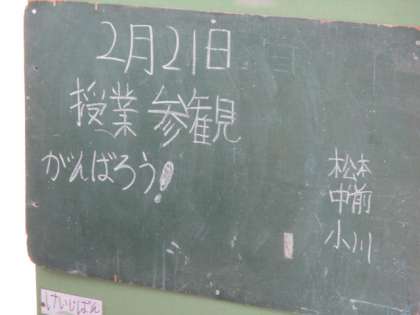 2月21日
授業参観
がんばろう!
松本
中前
小川
けいじばん